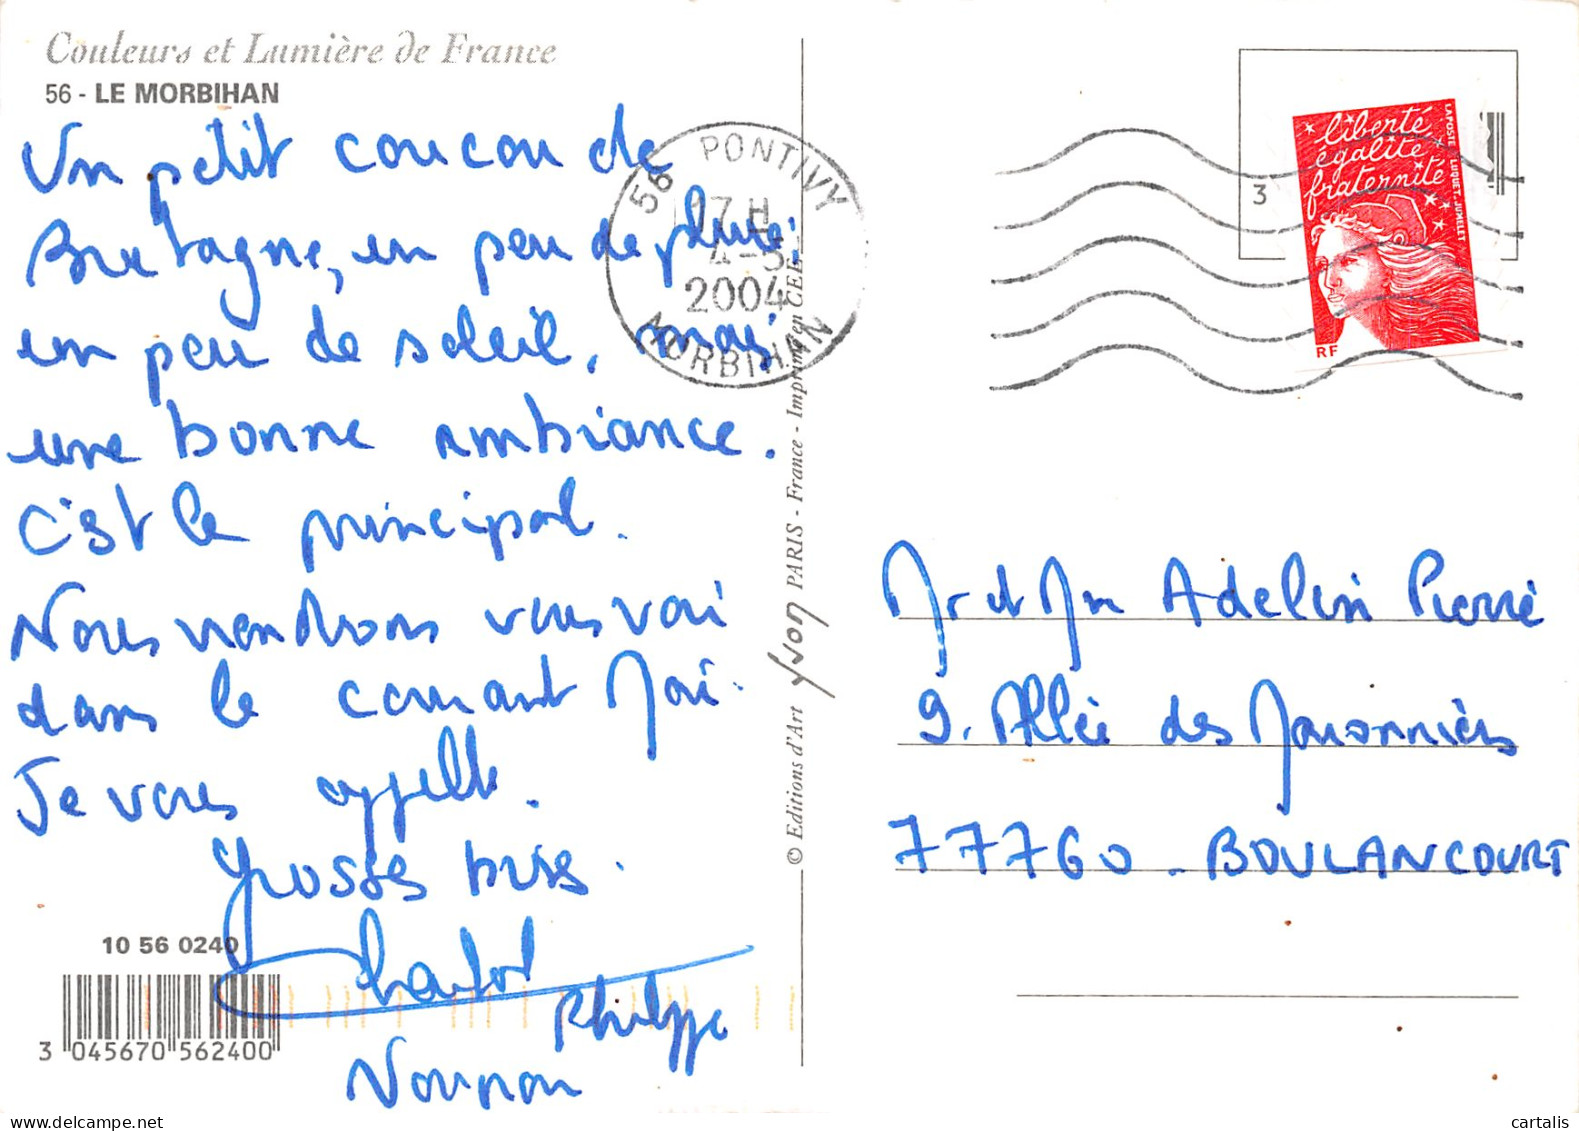 Couleurs et Lumière de France
56 - LE MORBIHAN
Un petit coucou de
Bretagne, un peu de pluie
un peu de soleil, mais
une bonne ambiance.
C'est le principal.
Nous viendrons vous voir
dans le courant Mai.
Je vous appelle.
Grosses bises.
Charlot
Philippe
10 56 0240
3 045670 562400
© Editions d'Art yvon PARIS - France - Imprimé en CEE
56 PONTIVY
17 H
4-5
2004
MORBIHAN
3
liberté
égalité
fraternité
LA POSTE LUQUET-JUMELET
RF
Mr et Mm Adelin Pierre
9. Allée des Maronniers
77760 - BOULANCOURT
cartalis